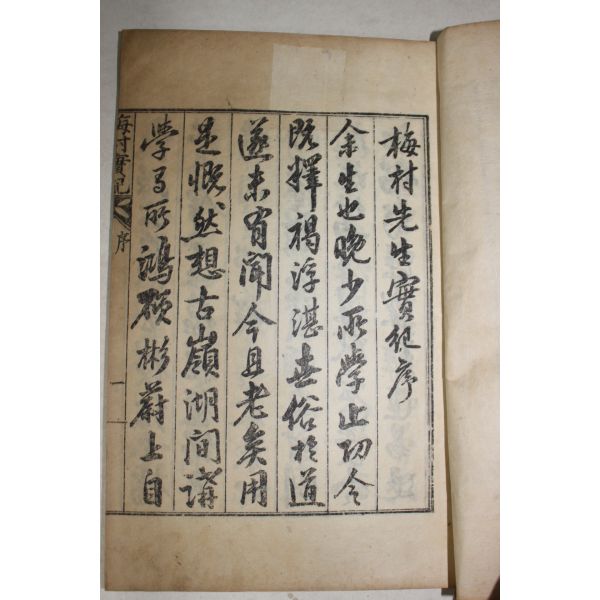 梅村先生實紀序
余生也晩少所學止功令
旣釋褐浮湛世俗於道
遂未有聞今且老矣用
是慨然想古嶺湖間講
學之所鴻碩彬蔚上自
梅村實紀 序 一